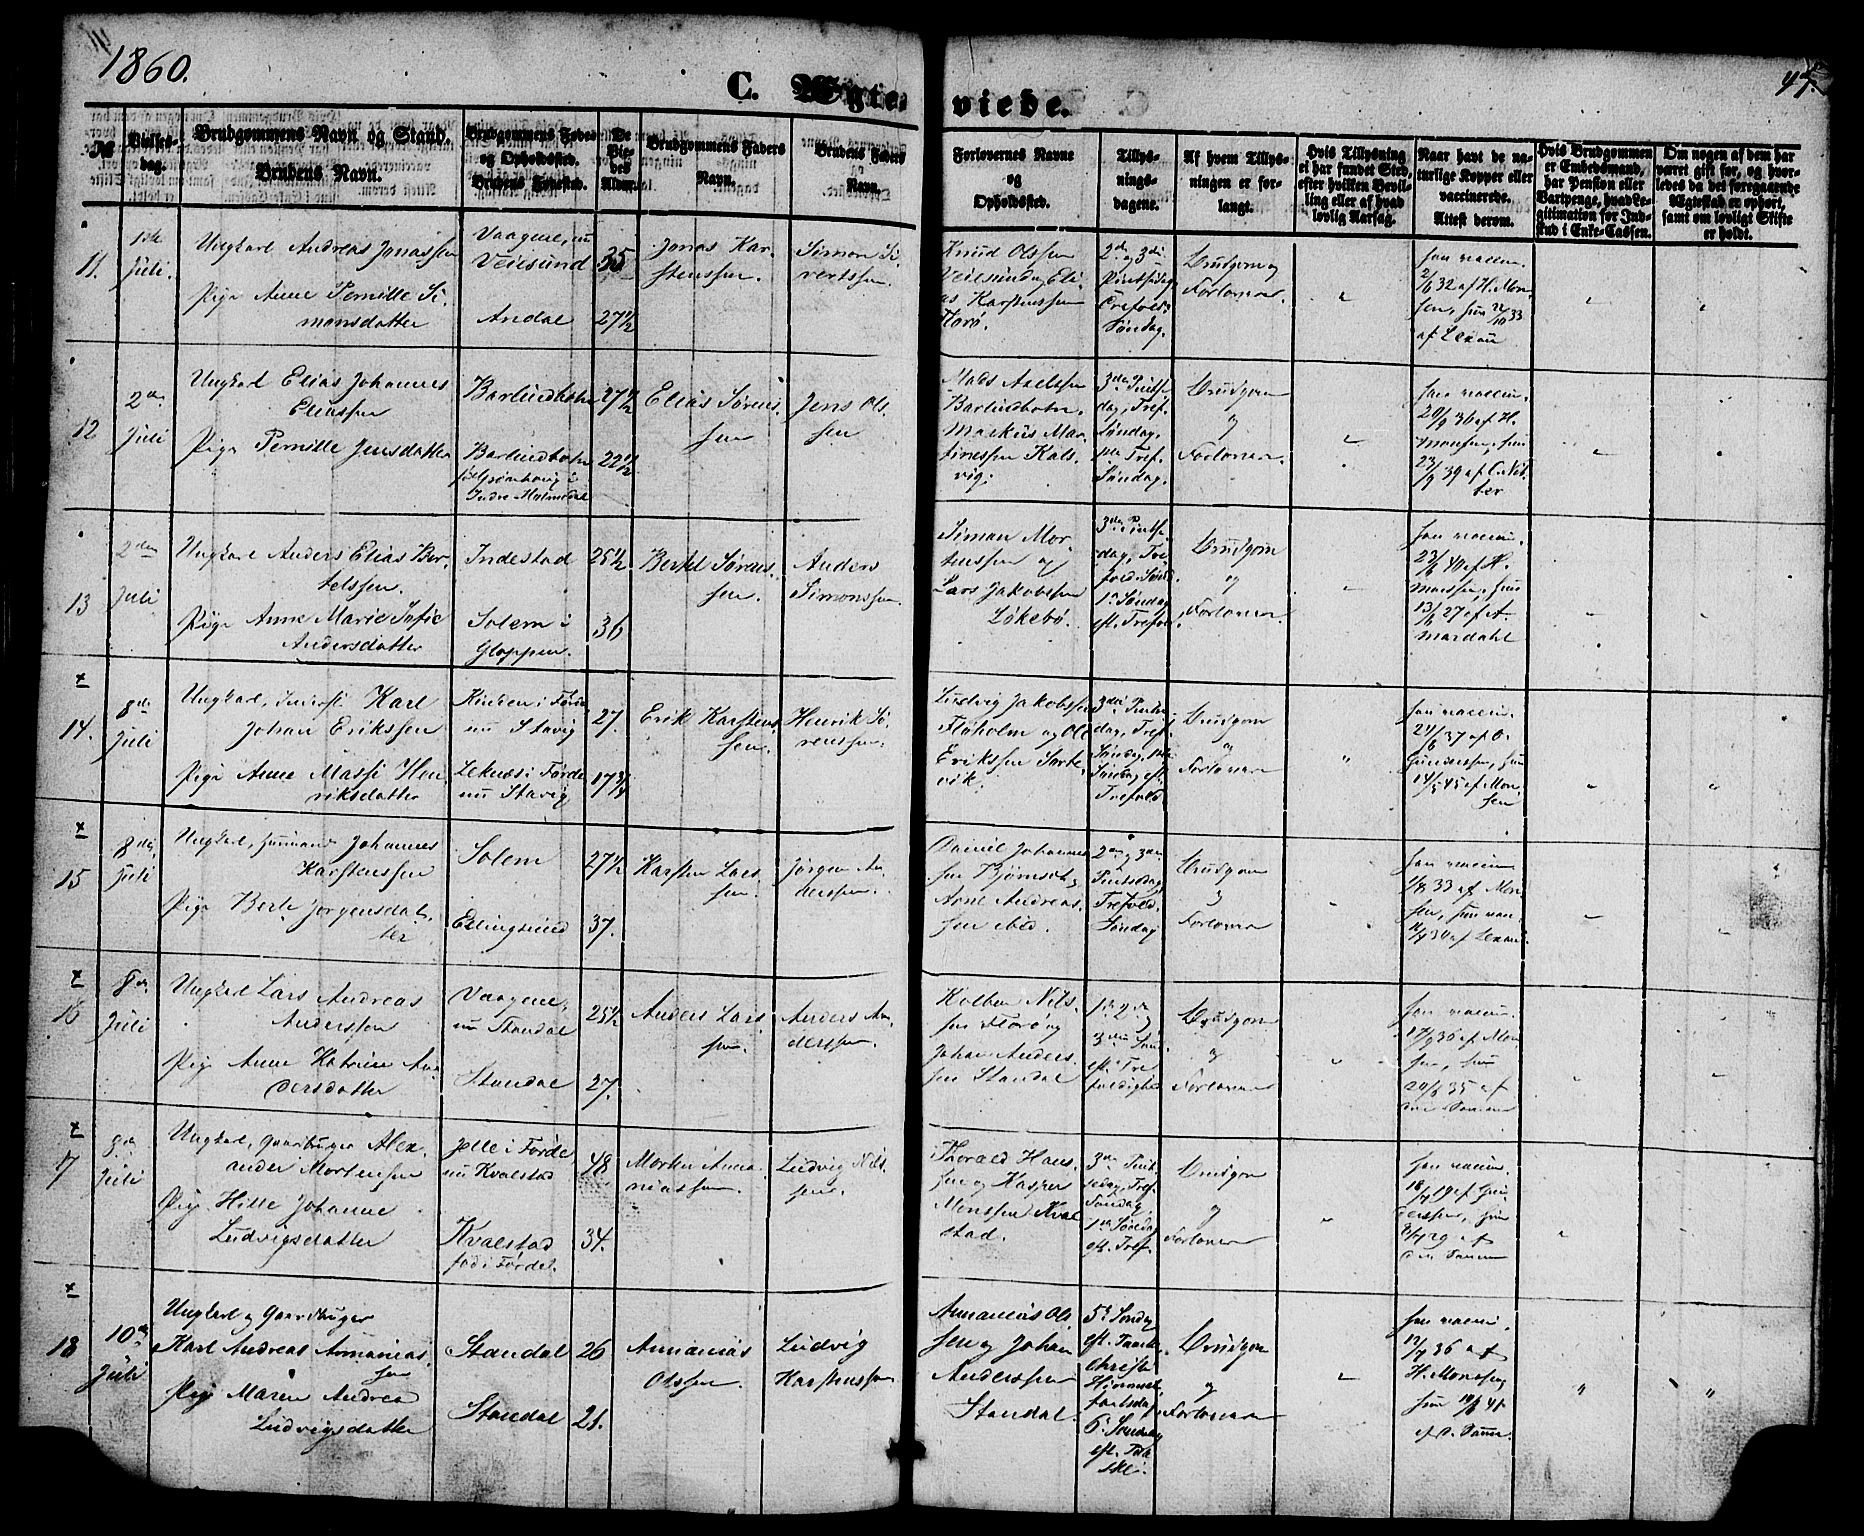 1860.
47.
C. Ægteviede.
No
Vielses-
dag.
Brudgommens Navn og Stand.
Brudens Navn.
Brudgommens Fødes
og Opholdssted.
Brudens Fødested.
De
Vie-
des
Alder.
Brudgommens Faders
Navn.
Brudens Faders
Navn.
Forlovernes Navne
og
Opholdssted.
Tillys-
nings-
dagene.
Af hvem Tillys-
ningen er for-
langt.
Hvis Tillysning
ei har fundet Sted,
efter hvilken Bevil-
ling eller af hvad
lovlig Aarsag.
Naar havt de na-
turlige Kopper eller
vaccinerede.
Attest derom.
Hvis Brudgommen
er Embedsmand,
har Pension eller
Vartpenge, hvad Le-
gitimation for Ind-
skud i Enke-Cassen.
Om nogen af dem har
været gift før, og hvor-
ledes da det foregaaende
Ægteskab er ophørt,
samt om lovligt Skifte
er holdt.
11.
1ste
Juli.
Ungkarl Andreas Jonassen
Pige Anne Pernille Si-
monsdatter
Vaagene, nu
Veiesund
Andal
35
27½
Jonas Kar-
stenssen.
Simon Si-
vertssen.
Knud Olssen
Veiesund og Eli-
as Karstenssen
Florø.
2den og 3die
Pintsedag
Trefold.
Søndag.
Brudgom og
Forlovere.
han vaccin.
2/6 32 af H. Mon-
sen, hun 2/10 33
af Lexau
12
2den
Juli
Ungkarl Elias Johannes
Eliassen
Pige Pernille Jensdatter
Barlindbotn
Barlindbotn
født Grønhaug i
Indre Holmedal
27½
22½
Elias Sørens-
sen
Jens Ols-
sen
Mads Axelssen
Barlindbotn.
Markus Mar-
tinussen Kals-
vig.
3die Pintse-
dag, Tref.
Søndag.
1ste Tref.
Søndag.
Brudgom
og
Forlovere.
han vaccin.
20/9 36 af H.
Monsen, hun
23/9 39 af
13
2den
Juli
Ungkarl Anders Elias Ber-
telssen.
Pige Anne Marie Sofie
Andersdatter
Indestad
Solem i
Gloppen.
25½
36
Bertel Sørens-
sen.
Anders
Simonssen.
Simon Mor-
tenssen og
Lars Jakobssen
Løkebø.
3die Pintse-
dag, Tre-
fold. Sønd.
1ste Søndag
eft. Trefol.
Brudgom
og
Forlovere.
han vaccin.
23/6 40 af H.
Monsen, hun
13/6 27 af A.
Mardahl
14.
8de
Juli
Ungkarl, Inderst Karl
Johan Erikssen
Pige Anne Massi Hen-
riksdatter
Kinden i Førde
nu Stavig
Leknes i Førde
nu Stavig
27.
17¾
Erik Karstens-
sen.
Henrik Sø-
renssen.
Ludvig Jakobssen
Floholm og Ole
Erikssen Sørte-
vik.
3die Pintse-
dag, Tref.
Søndag, 1ste
Søndag eft.
Trefold.
Brudgom
og
Forlovere
han vaccin.
24/6 37 af O.
Gunderssen, hun
14/5 45 af Mon-
sen
15
8de
Juli
Ungkarl, Huusmand Johannes
Karstenssen
Pige Berte Jørgensdat-
ter
Solem
Ellingsund
27½
37.
Karsten Lars-
sen.
Jørgen An-
derssen.
Daniel Johannes-
sen Bjørnset og
Arne Andreas-
sen ibid.
2den og 3die
Pintsedag
Trefold.
Søndag
Brudgom
og
Forlovere
han vaccin
1/8 33 af Mon-
sen, hun vac.
11/7 30 af Lexau.
16
8de
Juli
Ungkarl Lars Andreas
Anderssen
Pige Anne Katrine An-
dersdatter
Vaagene,
nu Standal
Standal
25½
27.
Anders Lars-
sen.
Anders An-
derssen.
Kolben Nils-
sen Florø og
Johan Anders-
sen Standal
1ste 2den og
3die Sønd.
eft. Tre-
foldighed
Brudgom
og
Forlovere
han vaccin.
17/9 36 af Mon-
sen, hun
20/6 35 af
17
8de
Juli
Ungkarl, Gaardbruger Alex-
ander Mortenssen
Pige Hille Johanne
Ludvigsdatter
Jelle i Førde,
nu Kvalstad
Kvalstad
fød i Førde.
48
34.
Morten Anna-
niassen.
Ludvig Nils-
sen.
Thorald Hans-
sen og Kasper
Monssen Kval-
stad.
3die Pint-
sedag, Tref.
Søndag,
1ste Søndag
eft. Tref.
Brudgom
og
Forlovere
han vaccin.
18/7 19 af Gun-
derssen, hun
29 af
18
10de
Juli
Ungkarl og Gaardbruger
Karl Andreas Annanias-
sen
Pige Maren Andrea
Ludvigsdatter
Standal
Standal
26
21.
Annanias
Olssen.
Ludvig
Karstenssen
Annanias Ols-
sen og Johan
Anderssen
Standal.
5te Søndag
eft. Paaske.
Christi
Himmel-
fartsdag,
6te Søndag
eft. Paa-
ske.
Brudgom
og
Forlovere
han vaccin.
17/7 36 af
H. Monssen
hun 10/8 41